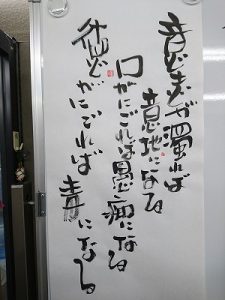 意志が濁れば
意地になる
口がにごれば愚痴になる
徳がにごれば 毒になる